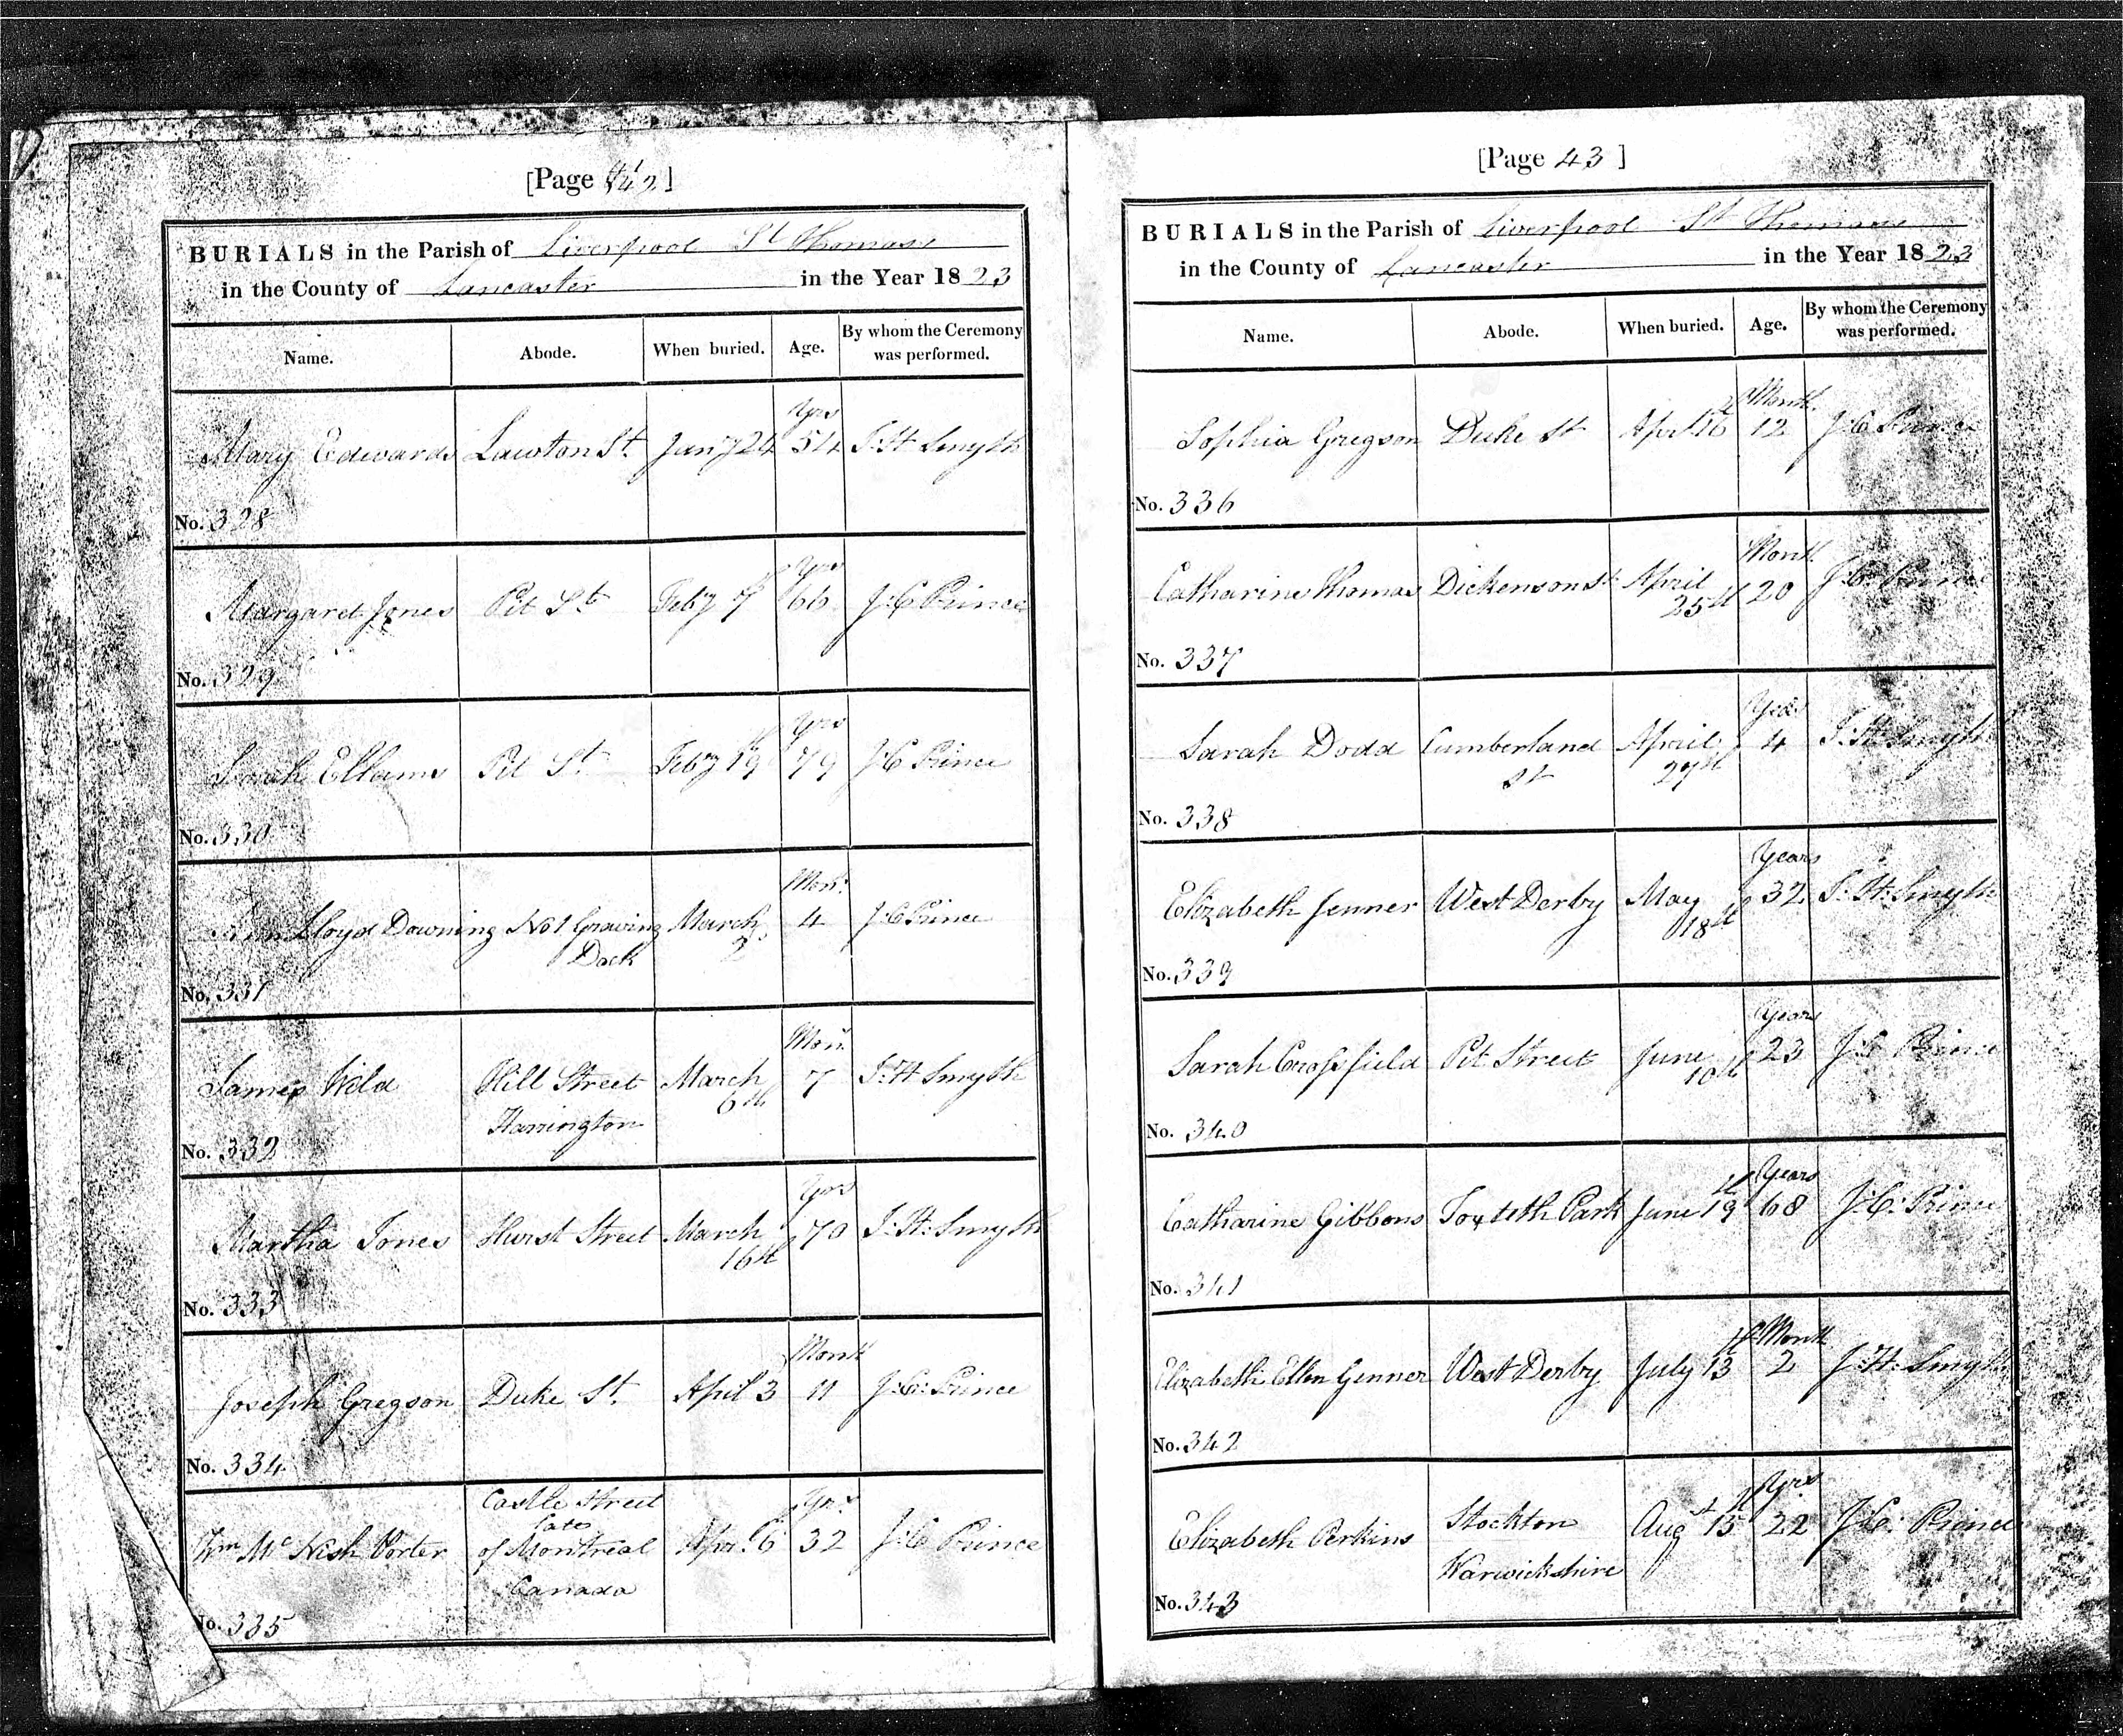 [Page 42]
BURIALS in the Parish of Liverpool St Thomas
in the County of Lancaster in the Year 1823
Name. Abode. When buried. Age. By whom the Ceremony was performed.
Mary Edwards Lawton St. Jany 24 Yrs 54 J. H. Smyth
No. 328
Margaret Jones Pit St. Feby 7 Yrs 66 J. C. Prince
No. 329
Sarah Ellams Pit St. Feby 19 Yrs 79 J. C. Prince
No. 330
Ann Lloyd Downing No 1 Graving March Mon. 4 J. C. Prince
Dock 2
No. 331
James Wild Hill Street March Mon. 7 J. H. Smyth
Harrington 6th
No. 332
Martha Jones Hurst Street March Yrs 70 J. H. Smyth
16th
No. 333
Joseph Gregson Duke St. April 3 Month 11 J. C. Prince
No. 334
Castle Street
late
Wm Mc Nish Porter of Montreal Apr. 6 Yrs 32 J. C. Prince
Canada
No. 335
[Page 43]
BURIALS in the Parish of Liverpool St Thomas
in the County of Lancaster in the Year 1823
Name. Abode. When buried. Age. By whom the Ceremony was performed.
Sophia Gregson Duke St April 16th Month. 12 J. C. Prince
No. 336
Catharine Thomas Dickenson St. April Month 20 J. C. Prince
25th
No. 337
Sarah Dodd Cumberland April Years 4 J. H. Smyth
St 27th
No. 338
Elizabeth Jenner West Derby May Years 32 J. H. Smyth
18th
No. 339
Sarah Crossfield Pit Street June Years 23 J. C. Prince
10th
No. 340
Catharine Gibbons Toxteth Park June 19th Years 68 J. C. Prince
No. 341
Elizabeth Ellen Genner West Derby July 13th Month 2 J. H. Smyth
No. 342
Elizabeth Perkins Stockton Augst 15th Yrs 22 J. C. Prince
Warwickshire
No. 343